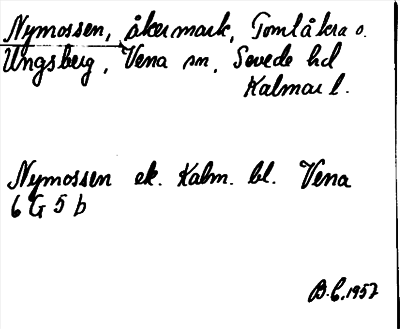 Nymossen, åkermark, Tomtåkra o.
Ungsberg, Vena sn, Sevede hd
Kalmar l.
Nymossen ek. Kalm. bl. Vena
6 G 5 b
B.C. 1957